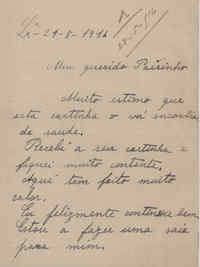 Lx.ª-29-8-1916
Meu querido Paisinho
Muito estimo que
esta cartinha o vá encontrar
de saude.
Recebi a sua cartinha e
fiquei muito contente.
Aqui tem feito muito
calor.
Eu felizmente continuo bem.
Estou a fazer uma saia
para mim.